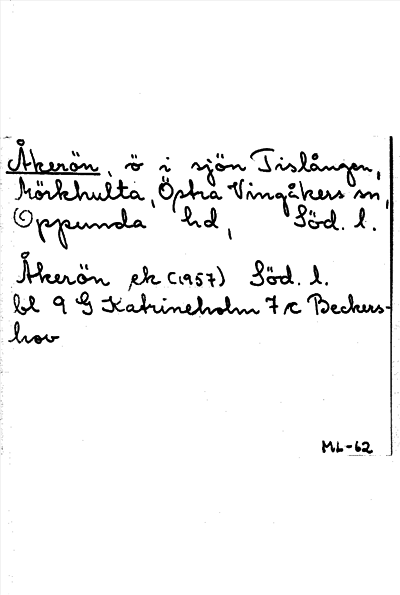 Åkerön, ö i sjön Tislången,
Mörkhulta, Östra Vingåkers sn,
Oppunda hd, Söd. l.
Åkerön ek (1957) Söd. l.
bl 9 G Katrineholm 7 c Beckers-
hov
ML-62